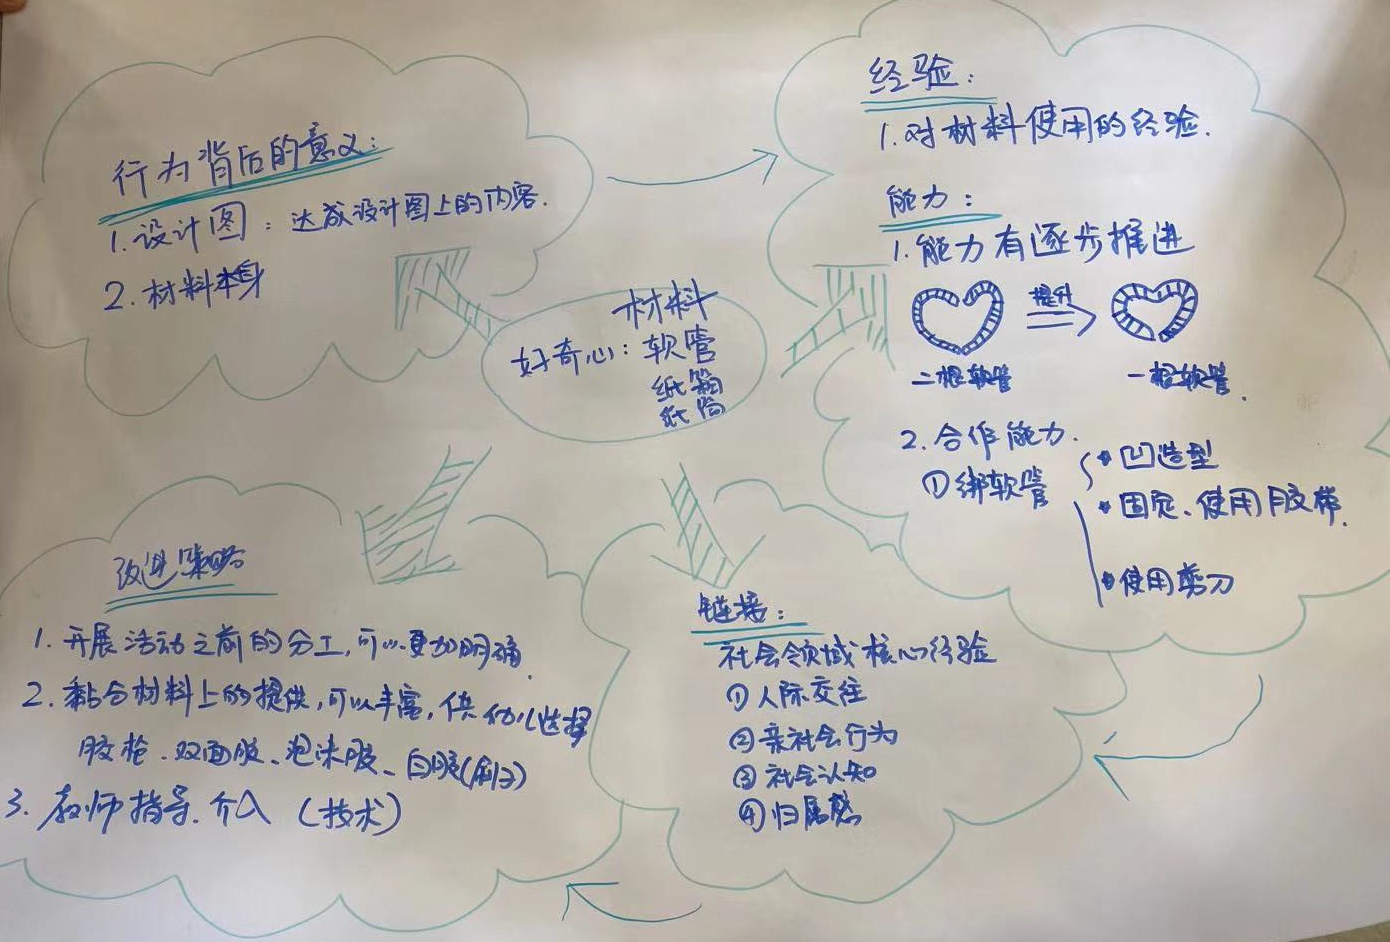 行为背后的意义:
1.设计图:达成设计图上的内容.
2.材料本身
材料
好奇心:软管
纸箱
纸筒
经验:
1.对材料使用的经验.
能力:
1.能力有逐步推进
提升
二根软管
一根软管.
2.合作能力.
①绑软管
凹造型
固定、使用胶带.
使用剪刀
链接:
社会领域核心经验
①人际交往
②亲社会行为
③社会认知
④归属感
改进策略
1.开展活动之前的分工,可以更加明确.
2.黏合材料上的提供,可以丰富,供幼儿选择
胶枪.双面胶、泡沫胶、白胶(刷子)
3.教师指导.介入(技术)